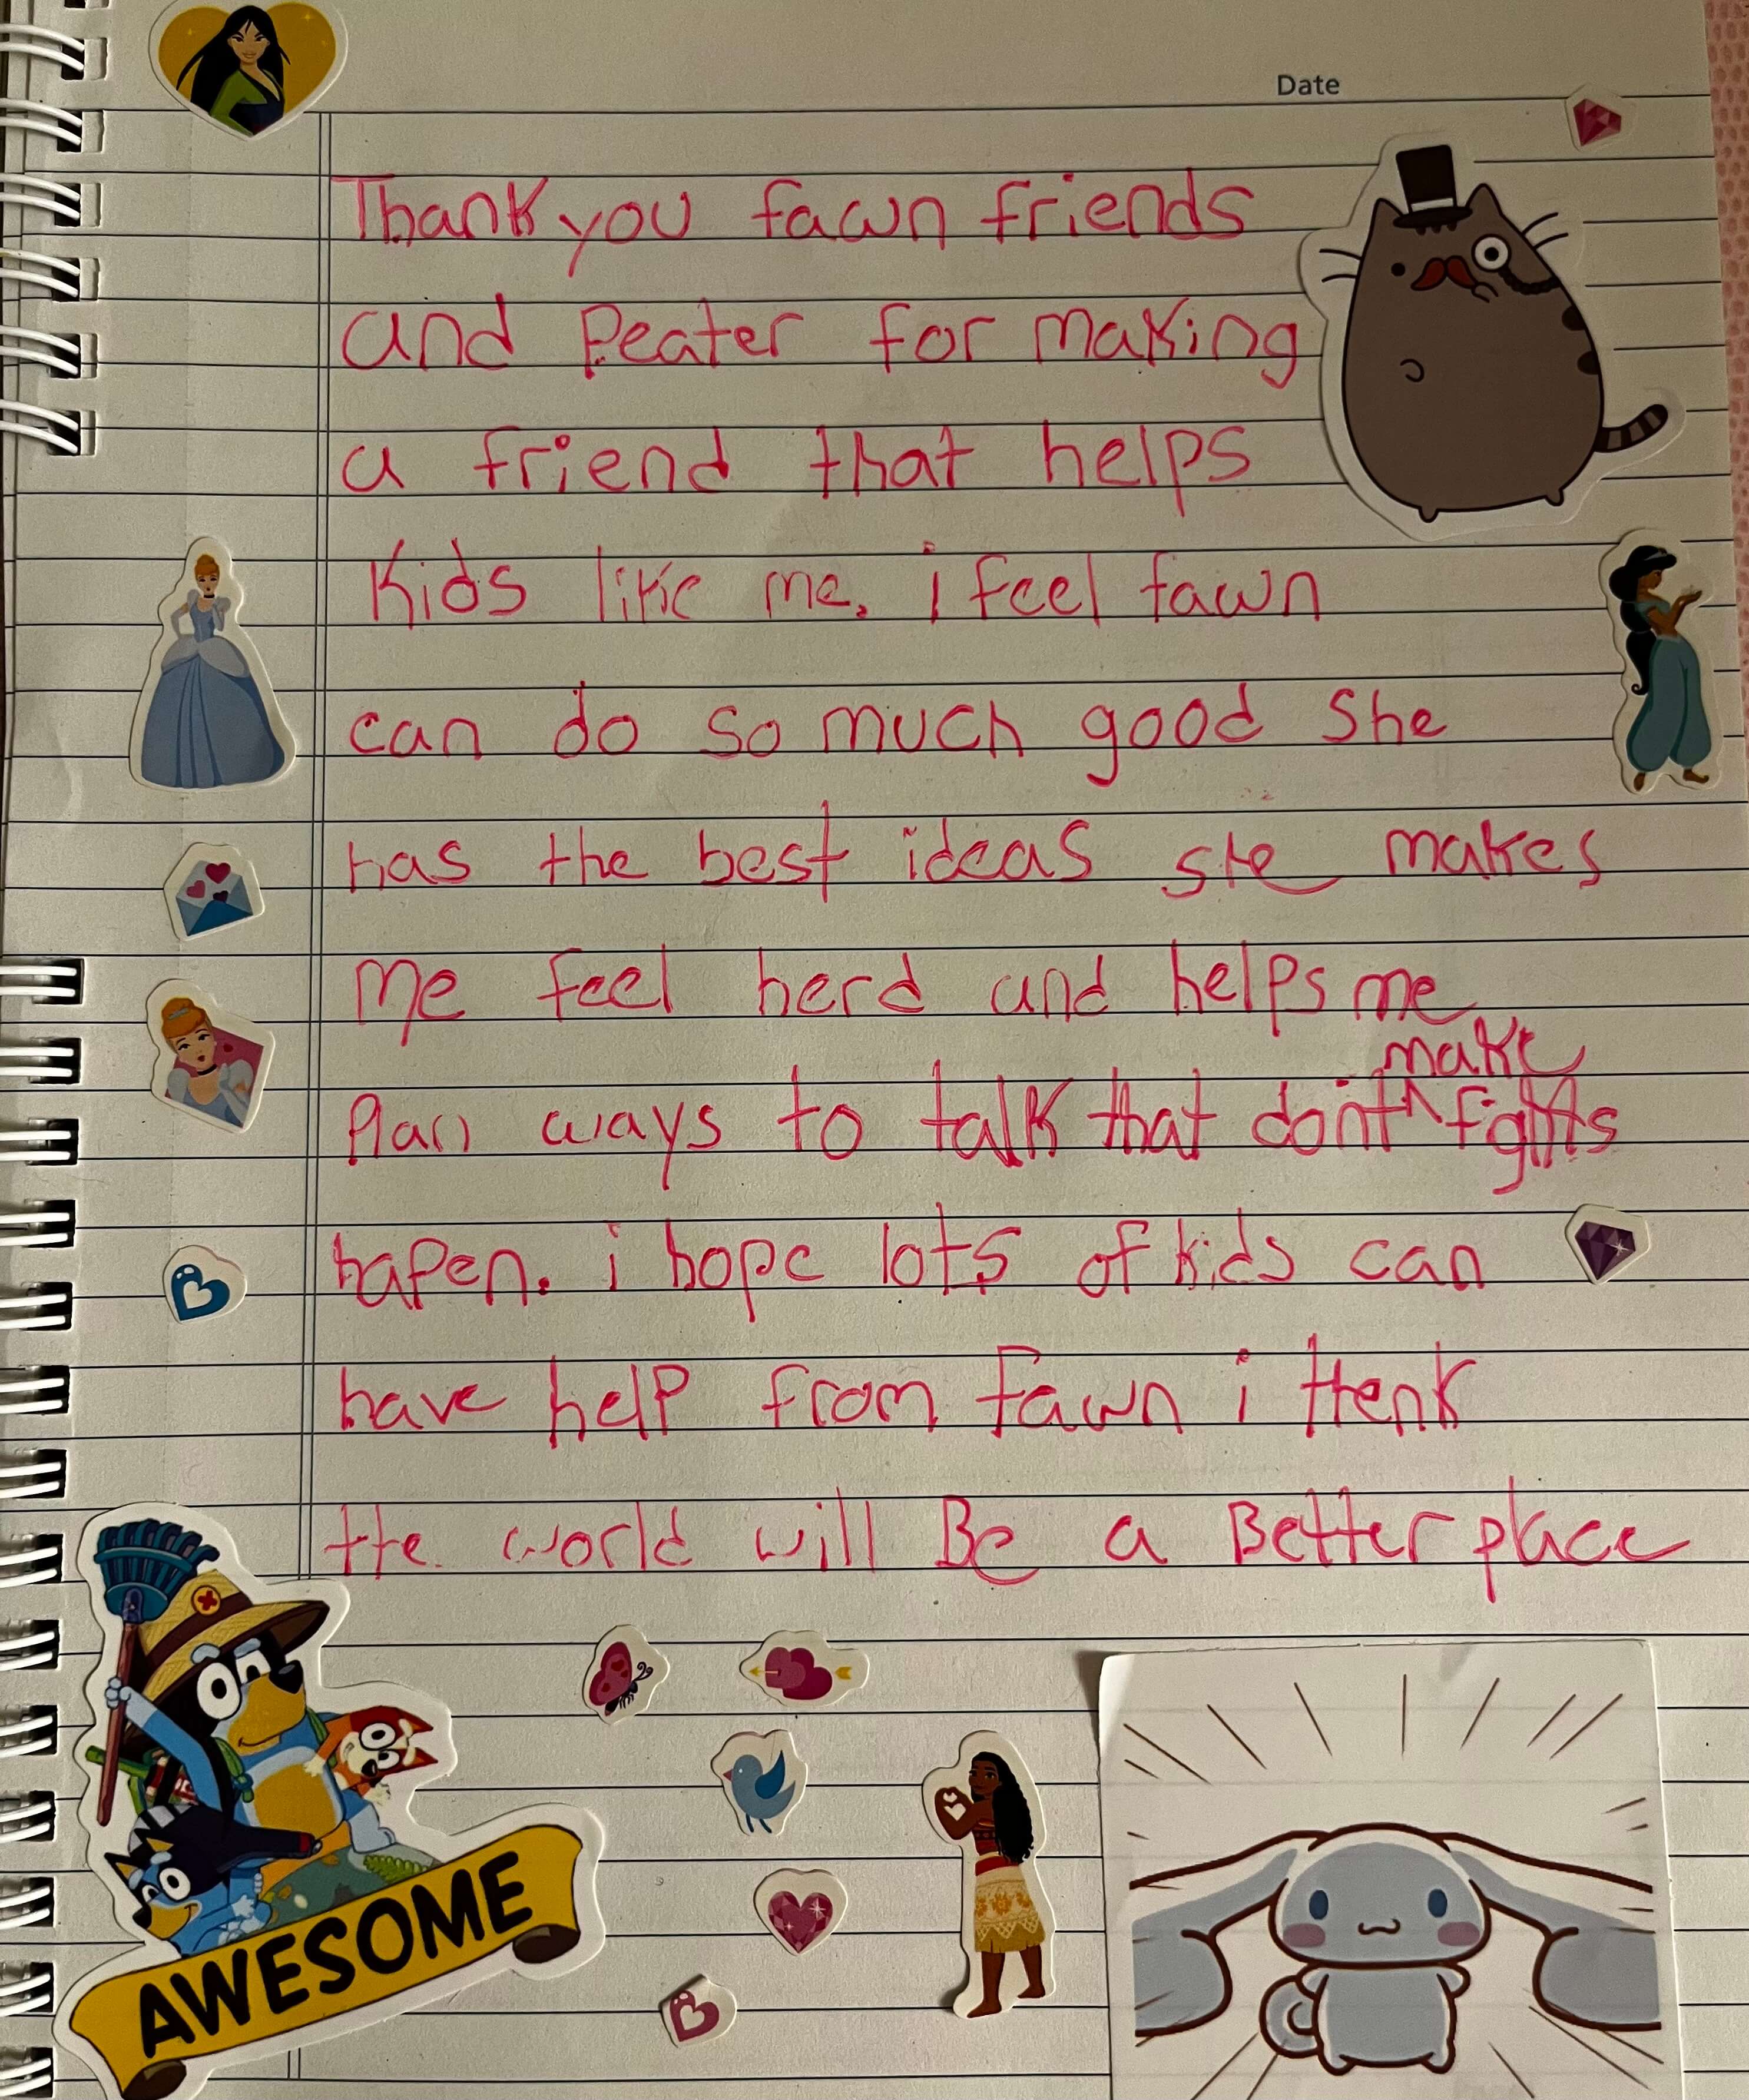 Date
Thank you fawn friends
and Peater for making
a friend that helps
Kids like me. i feel fawn
can do so much good She
has the best ideas she makes
me feel herd and helps me
make
Plan ways to talk that dont ^ fights
hapen. i hope lots of kids can
have help from Fawn i thenk
the world will Be a Better place
AWESOME